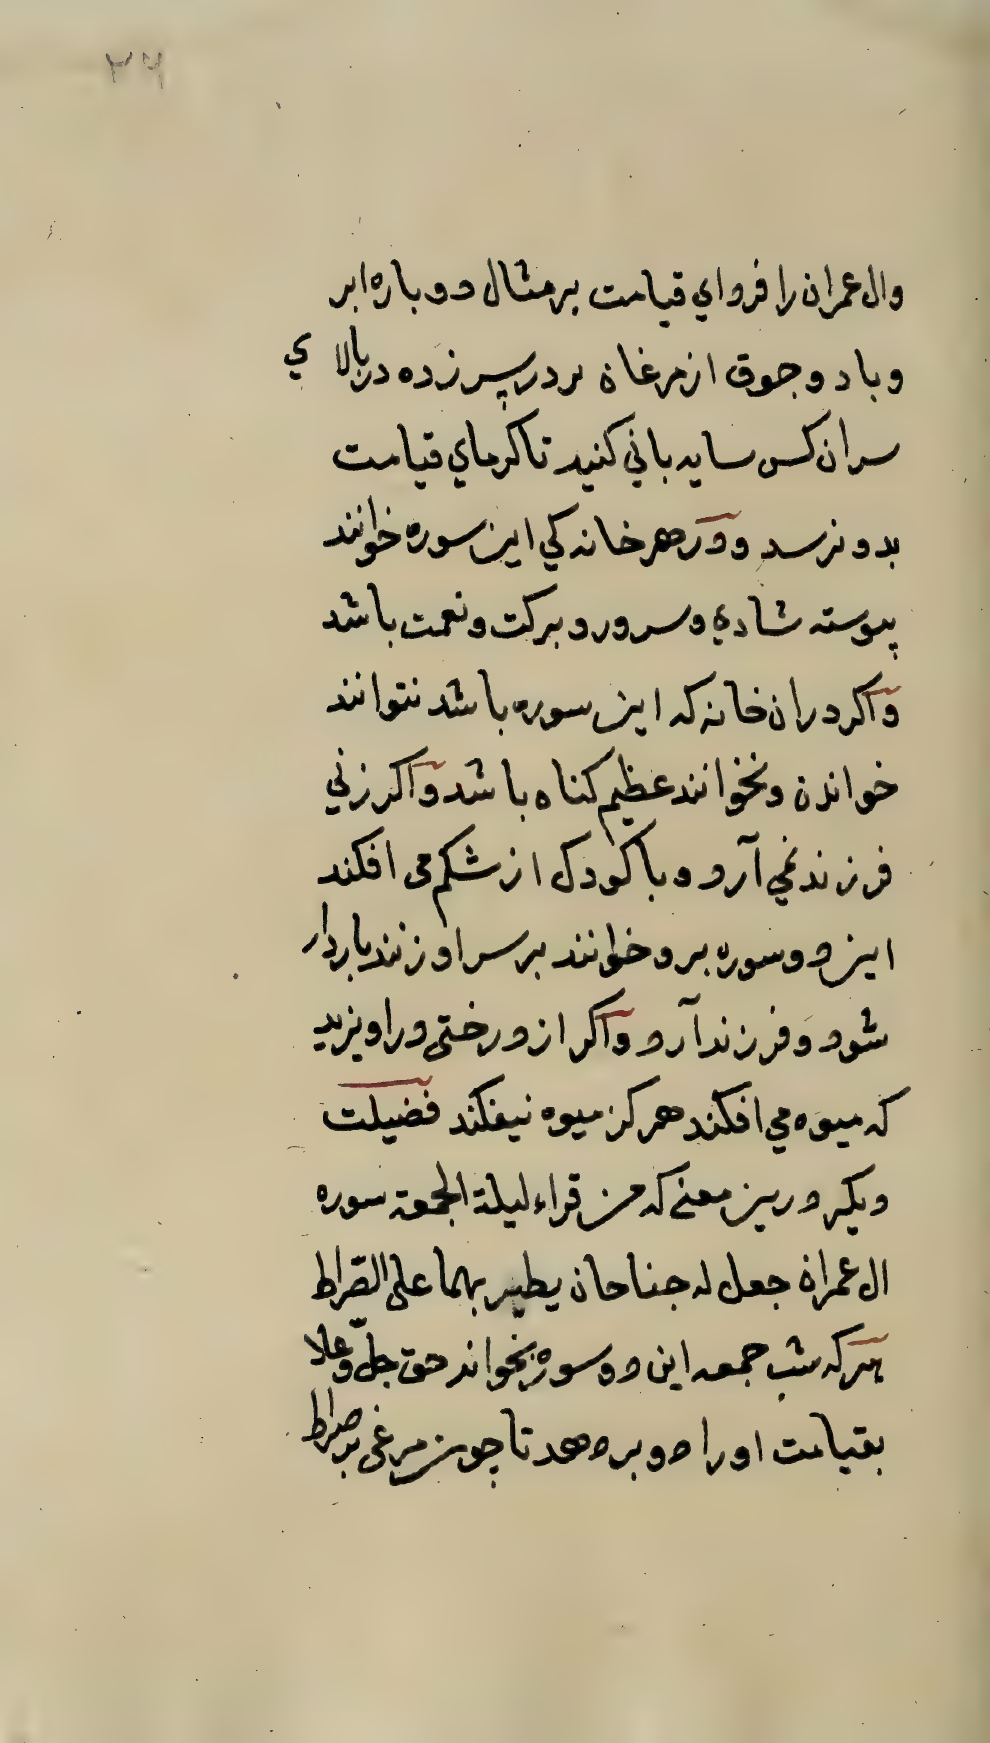 ۲۶
وال عمران را فرداي قيامت بر مثال دو باره ابر
و يا دو جوق از مرغان بر در پر زده در بالاي
سر ان كس سايه باني كنيد تا كرماي قيامت
بدو نرسد و در هر خانه كي اين سوره خوانند
پيوسته شادي و سرور و بركت و نعمت باشد
و اكر در ان خانه كه اين سوره باشد نتوانند
خواندن و نخوانند عظيم كناه باشد و اكر زني
فرزند نمي آرد و يا كودك از شكم مى افكند
اين دو سوره برو خوانند بر سر او زنند باردار
شود و فرزند آرد و اكر از درختى دراويزيد
كه ميوه مي افكند هركز ميوه نيفكند فضيلت
ديكر درين معنى كه من قراء ليلة الجمعة سوره
ال عمران جعل له جناحان يطير بهما على الصّراط
هركه شب جمعه اين دو سوره بخواند حق جلّ وعلا
بقيامت او را دو بر دهد تا چون مرغى بر صراط